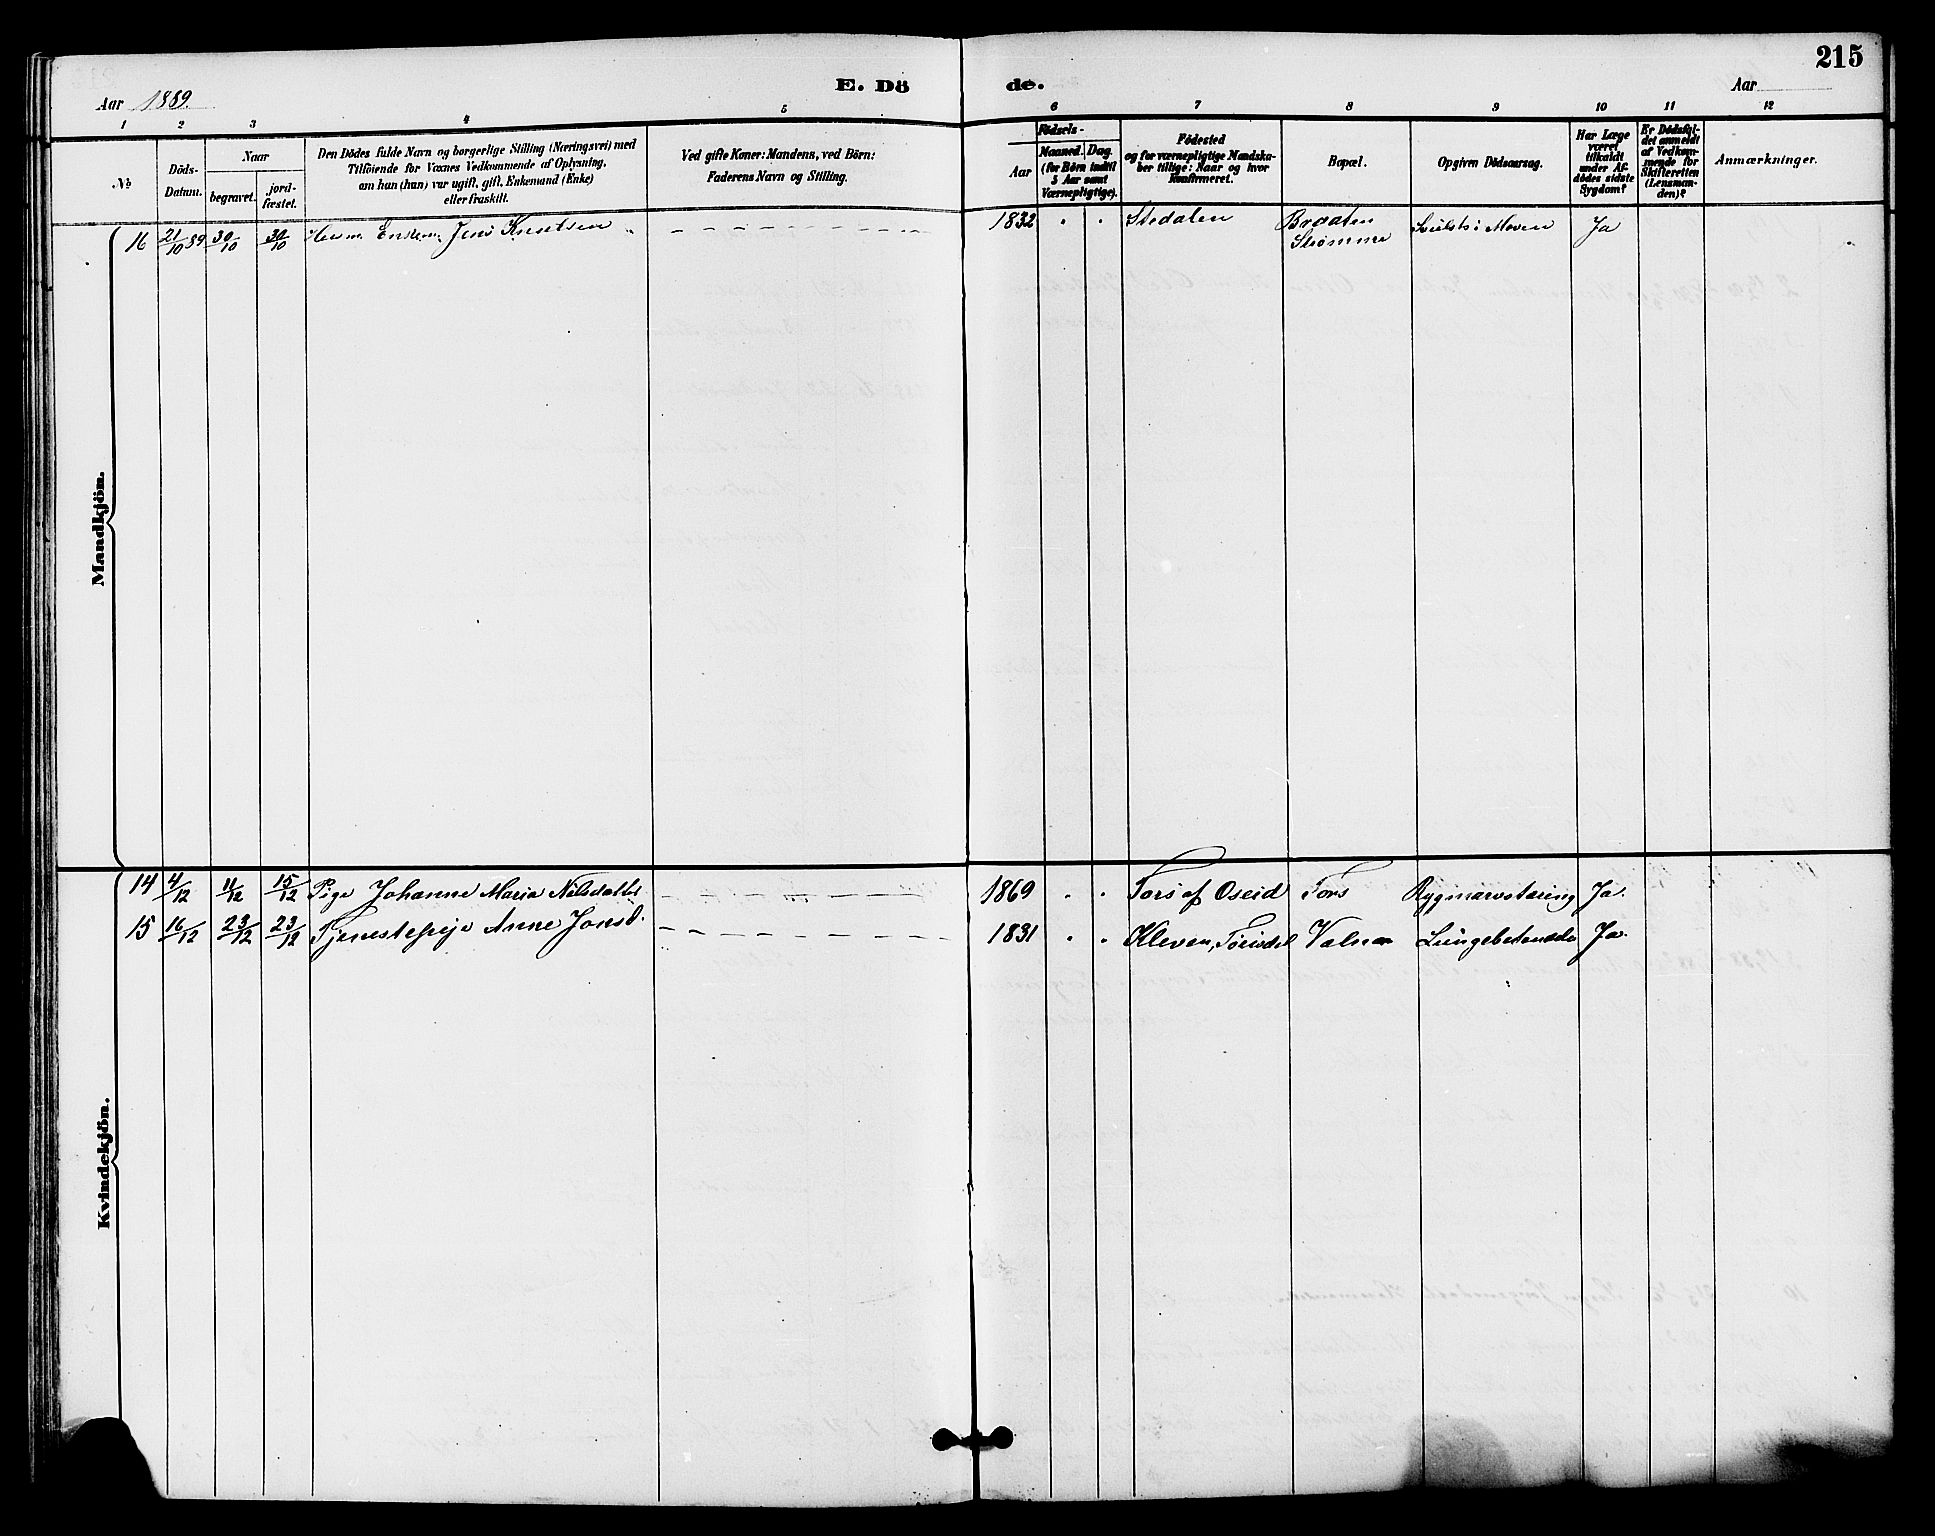 215
E. Dö de.
Aar 1889.
Aar
1 2 3 4 5 6 7 8 9 10 11 12
No
Döds-
Datum.
Naar
begravet.
jord-
fæstet.
Den Dödes fulde Navn og borgerlige Stilling (Næringsvei) med
Tilföiende for Voxnes Vedkommende af Oplysning,
om hun (han) var ugift, gift, Enkemand (Enke)
eller fraskilt.
Ved gifte Koner: Mandens, ved Börn:
Faderens Navn og Stilling.
Födsels-
Aar
Maaned. Dag.
(for Börn indtil
5 Aar samt
Værnepligtige).
Födested
og for værnepligtige Mandska-
ber tillige: Naar og hvor
Konfirmeret.
Bopæl.
Opgiven Dödsaarsag.
Har Læge
været
tilkaldt
under Af-
dödes sidste
Sygdom?
Er Dödsfal-
det anmeldt
af Vedkom-
mende for
Skifteretten
(Lensman-
den)?
Anmærkninger.
Mandkjön.
16 21/10 89 30/10 30/10 Jens Knutsen 1832 " " Stedalen Braaten Strømme i Maven Ja
Kvindekjön.
14 4/12 11/12 15/12 Pige Johanne Maria Nilsdatter 1869 " " Fors af Oseid Fors Rygmarvstæring Ja.
15 16/12 23/12 23/12 Tjenestepige Anne Jonsd. 1831 " " Kleven, Valnes Lungebetændelse Ja.